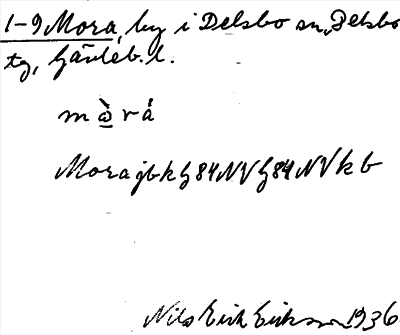 1-9 Mora, by i Delsbo sn, Delsbo
tg, Gävleb. l.
mὼrá
Mora jbkg 84 NV g 84 NV kb
Nils Erik Erikson 1936